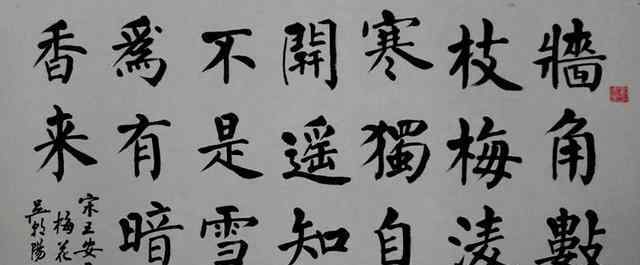 牆角數
枝梅淩
寒獨自
開遥知
不是雪
為有暗
香来
宋王安
梅花
吴朝陽